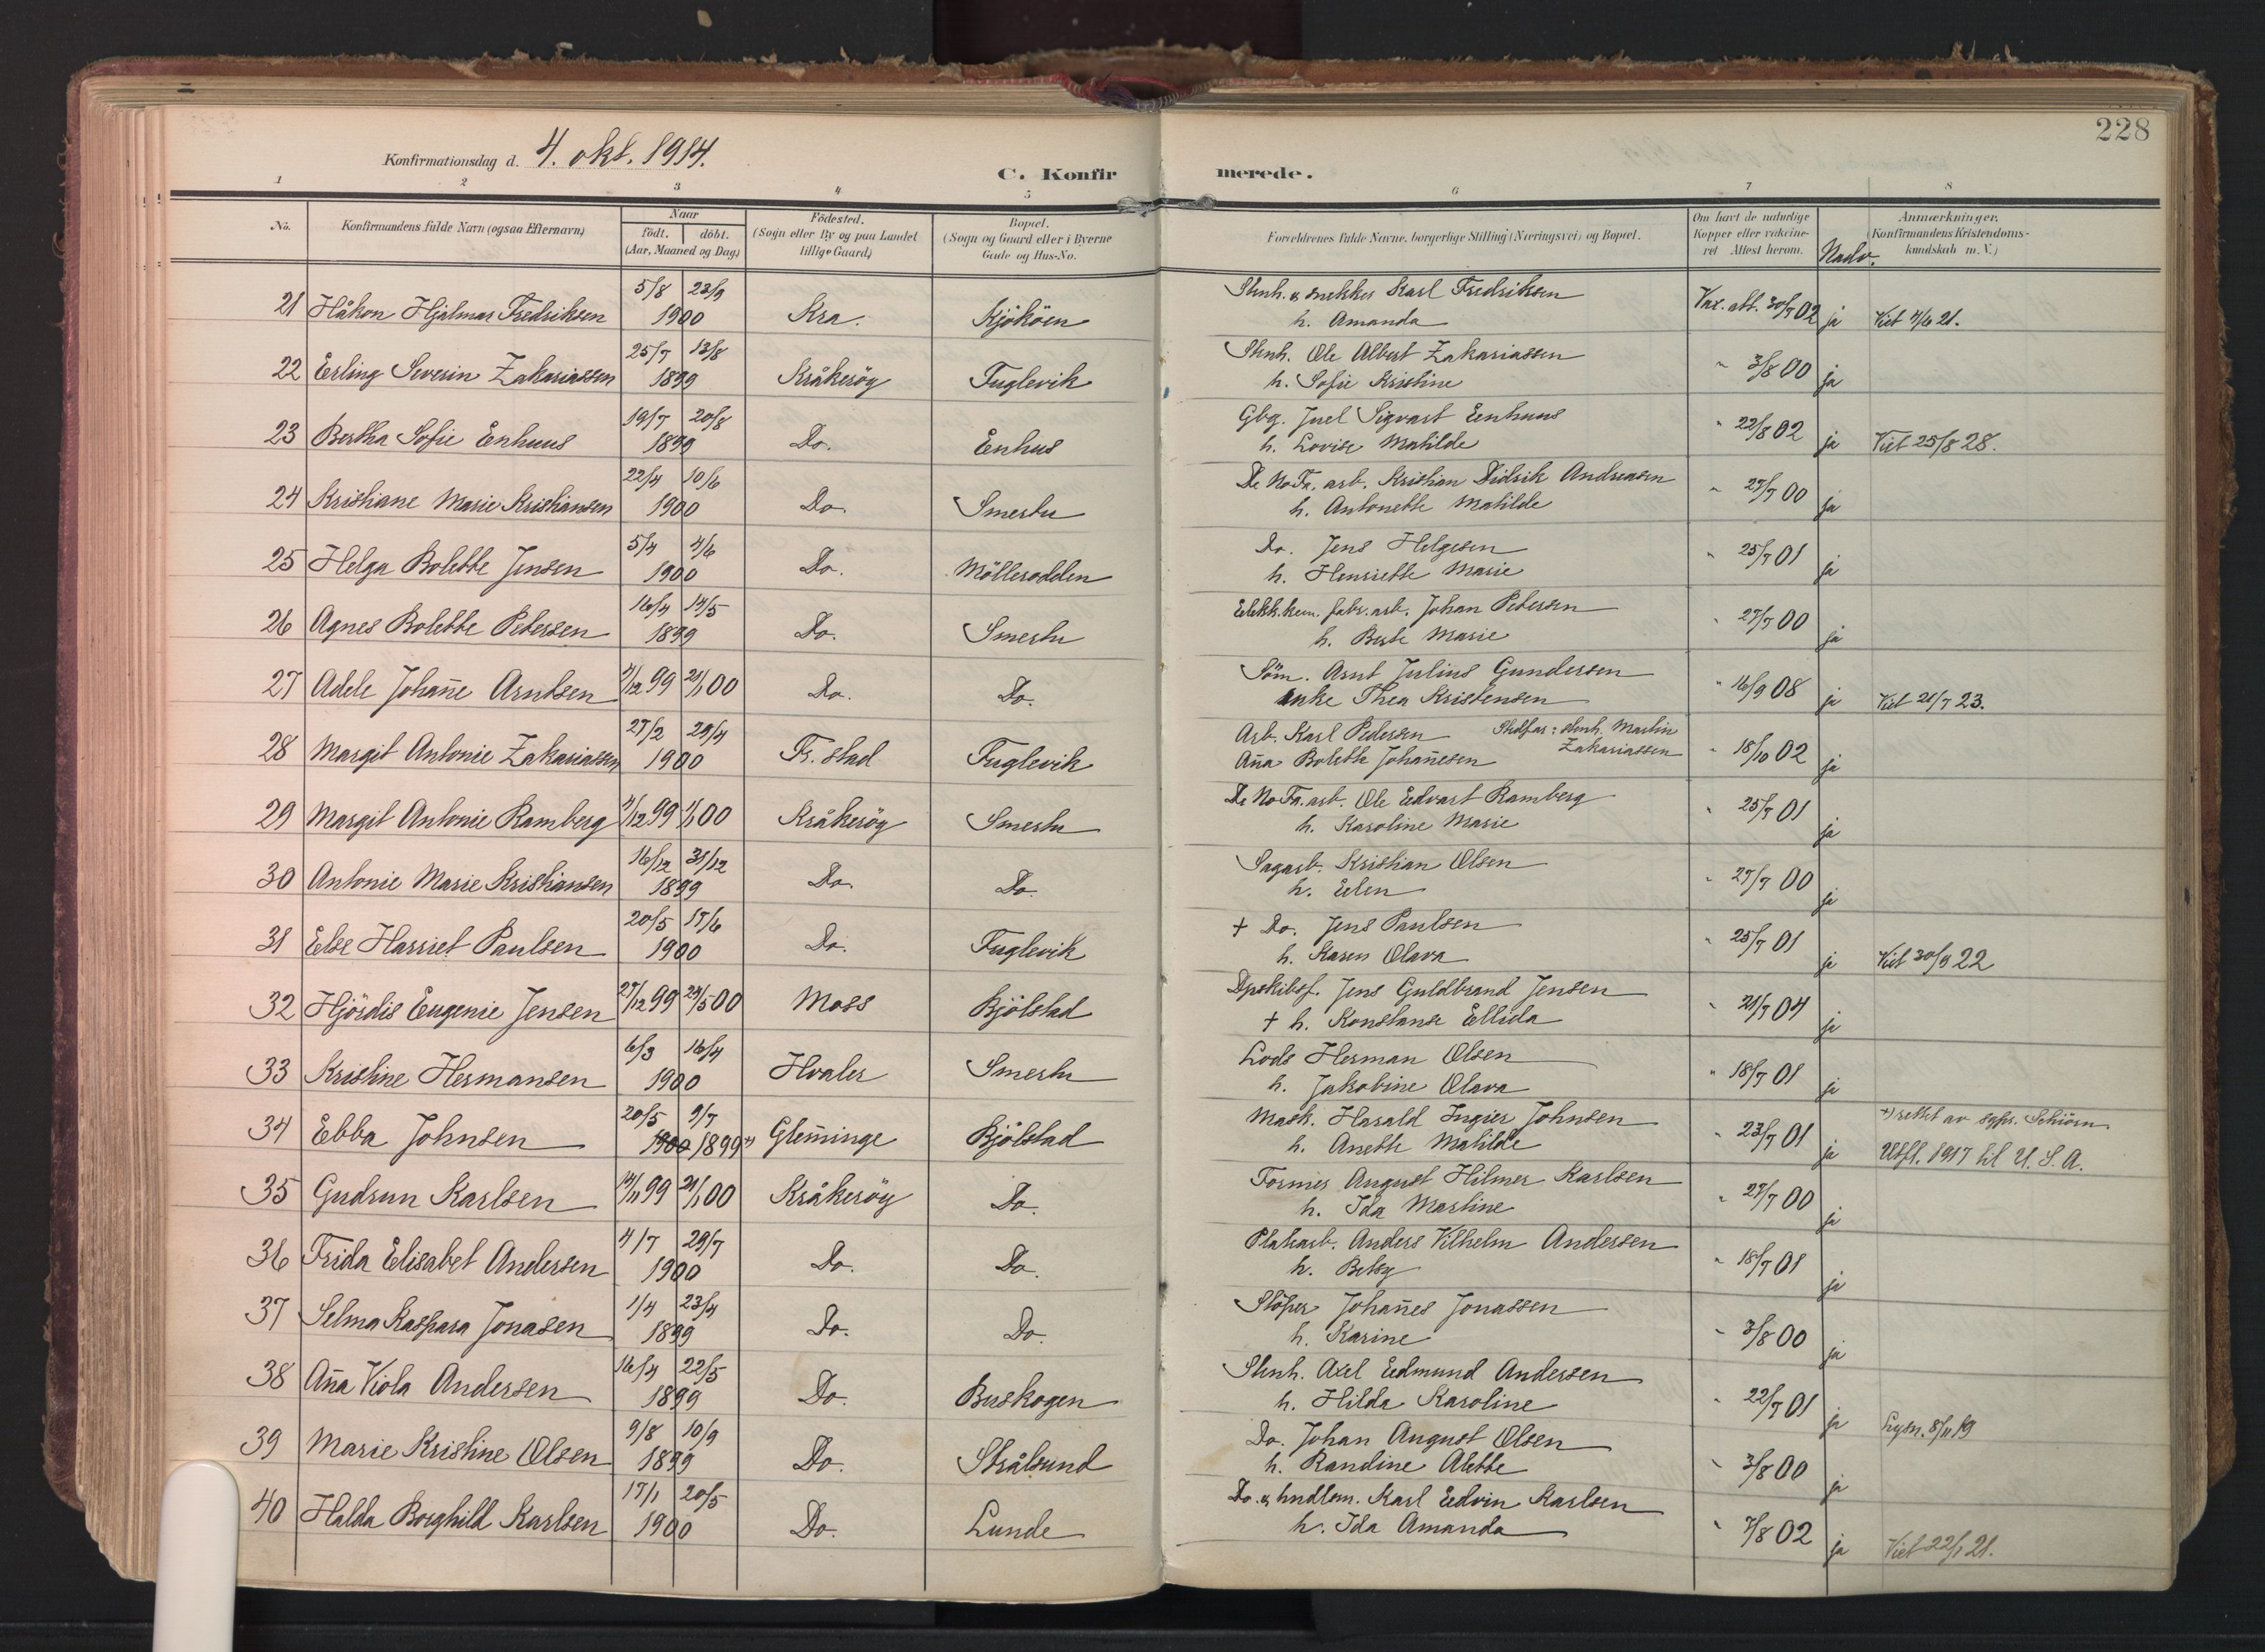 228
Konfirmationsdag d. 4. okt. 1914.
C. Konfirmerede.
1 2 3 4 5 6 7 8
No. | Konfirmandens fulde Navn (ogsaa Efternavn) | Naar født. døbt. (Aar, Maaned og Dag) | Födested. (Sogn eller By og paa Landet tillige Gaard) | Bopæl. (Sogn og Gaard eller i Byerne Gade og Hus-No. | Forældrenes fulde Navne, borgerlige Stilling (Næringsvei) og Bopæl. | Om havt de naturlige Kopper eller vakcineret Attest herom. | Nadv. | Anmærkninger. (Konfirmandens Kristendomskundskab m. V.)
21 Håkon Hjalmar Fredriksen 5/8 23/9 1900 Kra. Kjököen Stenh. & snekker Karl Fredriksen
h. Amanda Vax. att. 30/7 02 ja Viet 4/6 21.
22 Erling Severin Zakariassen 25/7 13/8 1899 Kråkeröy Fuglevik Stenh. Ole Albert Zakariassen
h. Sofie Kristine " 3/8 00 ja
23 Bertha Sofie Enhuus 19/7 20/8 1899 Do. Enhus Gbg. Juel Sigvart Eenhuus
h. Lovise Matilde " 22/8 02 ja Viet 25/8 28.
24 Kristiane Marie Kristiansen 22/4 10/6 1900 Do. Smertu De No Fa. arb. Kristian Didrik Andreasen
h. Antonette Matilde " 27/7 00 ja
25 Helga Bolette Jensen 5/4 4/6 1900 Do. Mölleroddden Do. Jens Helgesen
h. Henriette Marie " 25/7 01 ja
26 Agnes Bolette Petersen 16/4 14/5 1899 Do. Smertu Elekk. kem. fabr. arb. Johan Petersen
h. Berte Marie " 27/7 00 ja
27 Adele Johan̄e Arntsen 4/12 99 21/1 00 Do. Do. Söm. Arnt Julius Gundersen
enke Thea Kristensen " 16/9 08 ja Viet 21/7 23.
28 Margit Antonie Zakariassen 27/2 29/4 1900 Fr. stad Fuglevik Arb. Karl Pedersen Stedfar: stenh. Martin Zakariassen
An̄a Bolette Johan̄esen " 18/10 02 ja
29 Margit Antonie Ramberg 4/12 99 1/1 00 Kråkeröy Smertu De No Fa. arb. Ole Edvart Ramberg
h. Karoline Marie " 25/7 01 ja
30 Antonie Marie Kristiansen 16/12 31/12 1899 Do. Do. Sagarb. Kristian Olsen
h. Elen " 27/7 00 ja
31 Else Harriet Paulsen 20/5 17/6 1900 Do. Fuglevik + Do. Jens Paulsen
h. Karen Olava " 25/7 01 ja Viet 30/9 22
32 Hjördis Eugenie Jensen 27/12 99 24/5 00 Moss Bjölstad Dpskibsf. Jens Guldbrand Jensen
+ h. Konstanse Ellida " 21/7 04 ja
33 Kristine Hermansen 6/3 16/4 1900 Hvaler Smertu Lods Herman Olsen
h. Jakobine Olava " 18/7 01 ja
34 Ebba Johnsen 20/5 9/7 1900 1899 +) Glem̄inge Bjölstad Mask. Harald Ingier Johnsen
h. Anette Matilde " 23/7 01 ja +) rettet av sgpr. Schiörn
Utfl. 1917 til U. S. A.
35 Gudrun Karlsen 14/11 99 21/1 00 Kråkeröy Do. Former August Hilmer Karlsen
h. Ida Martine " 27/7 00 ja
36 Frida Elisabet Andersen 4/7 29/7 1900 Do. Do. Platearb. Anders Vilhelm Andersen
h. Betsy " 18/7 01 ja
37 Selma Kaspara Jonasen 1/4 23/4 1899 Do. Do. Stöper Johan̄es Jonassen
h. Karine " 3/8 00 ja
38 An̄a Viola Andersen 16/4 22/5 1899 Do. Buskogen Stenh. Axel Edmund Andersen
h. Hilda Karoline " 22/7 01 ja Lysn. 8/11 19
39 Marie Kristine Olsen 9/8 10/9 1899 Do. Strålsund Do. Johan August Olsen
h. Randine Alette " 3/8 00 ja
40 Halda Borghild Karlsen 17/1 20/5 1900 Do. Lunde Do. & hndlsm. Karl Edvin Karlsen
h. Ida Amanda " 7/8 02 ja Viet 22/1 21.